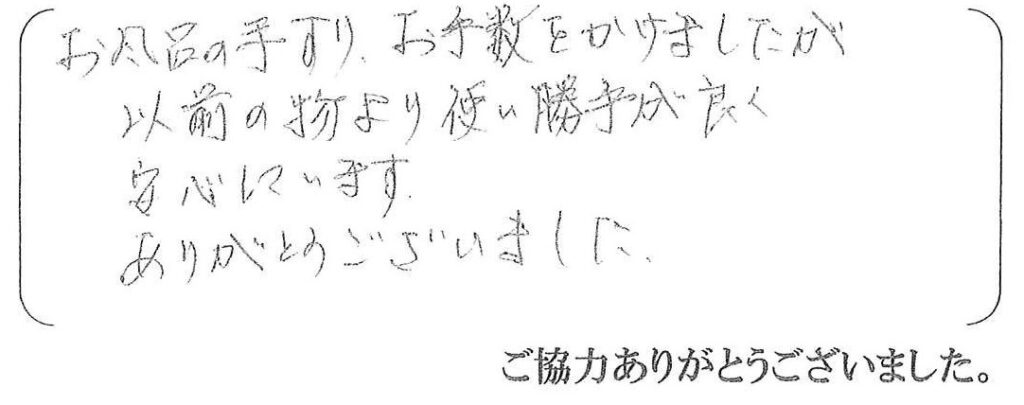 お風呂の手すり、お手数をかけましたが
以前の物より使い勝手が良く
安心しています。
ありがとうございました。
ご協力ありがとうございました。